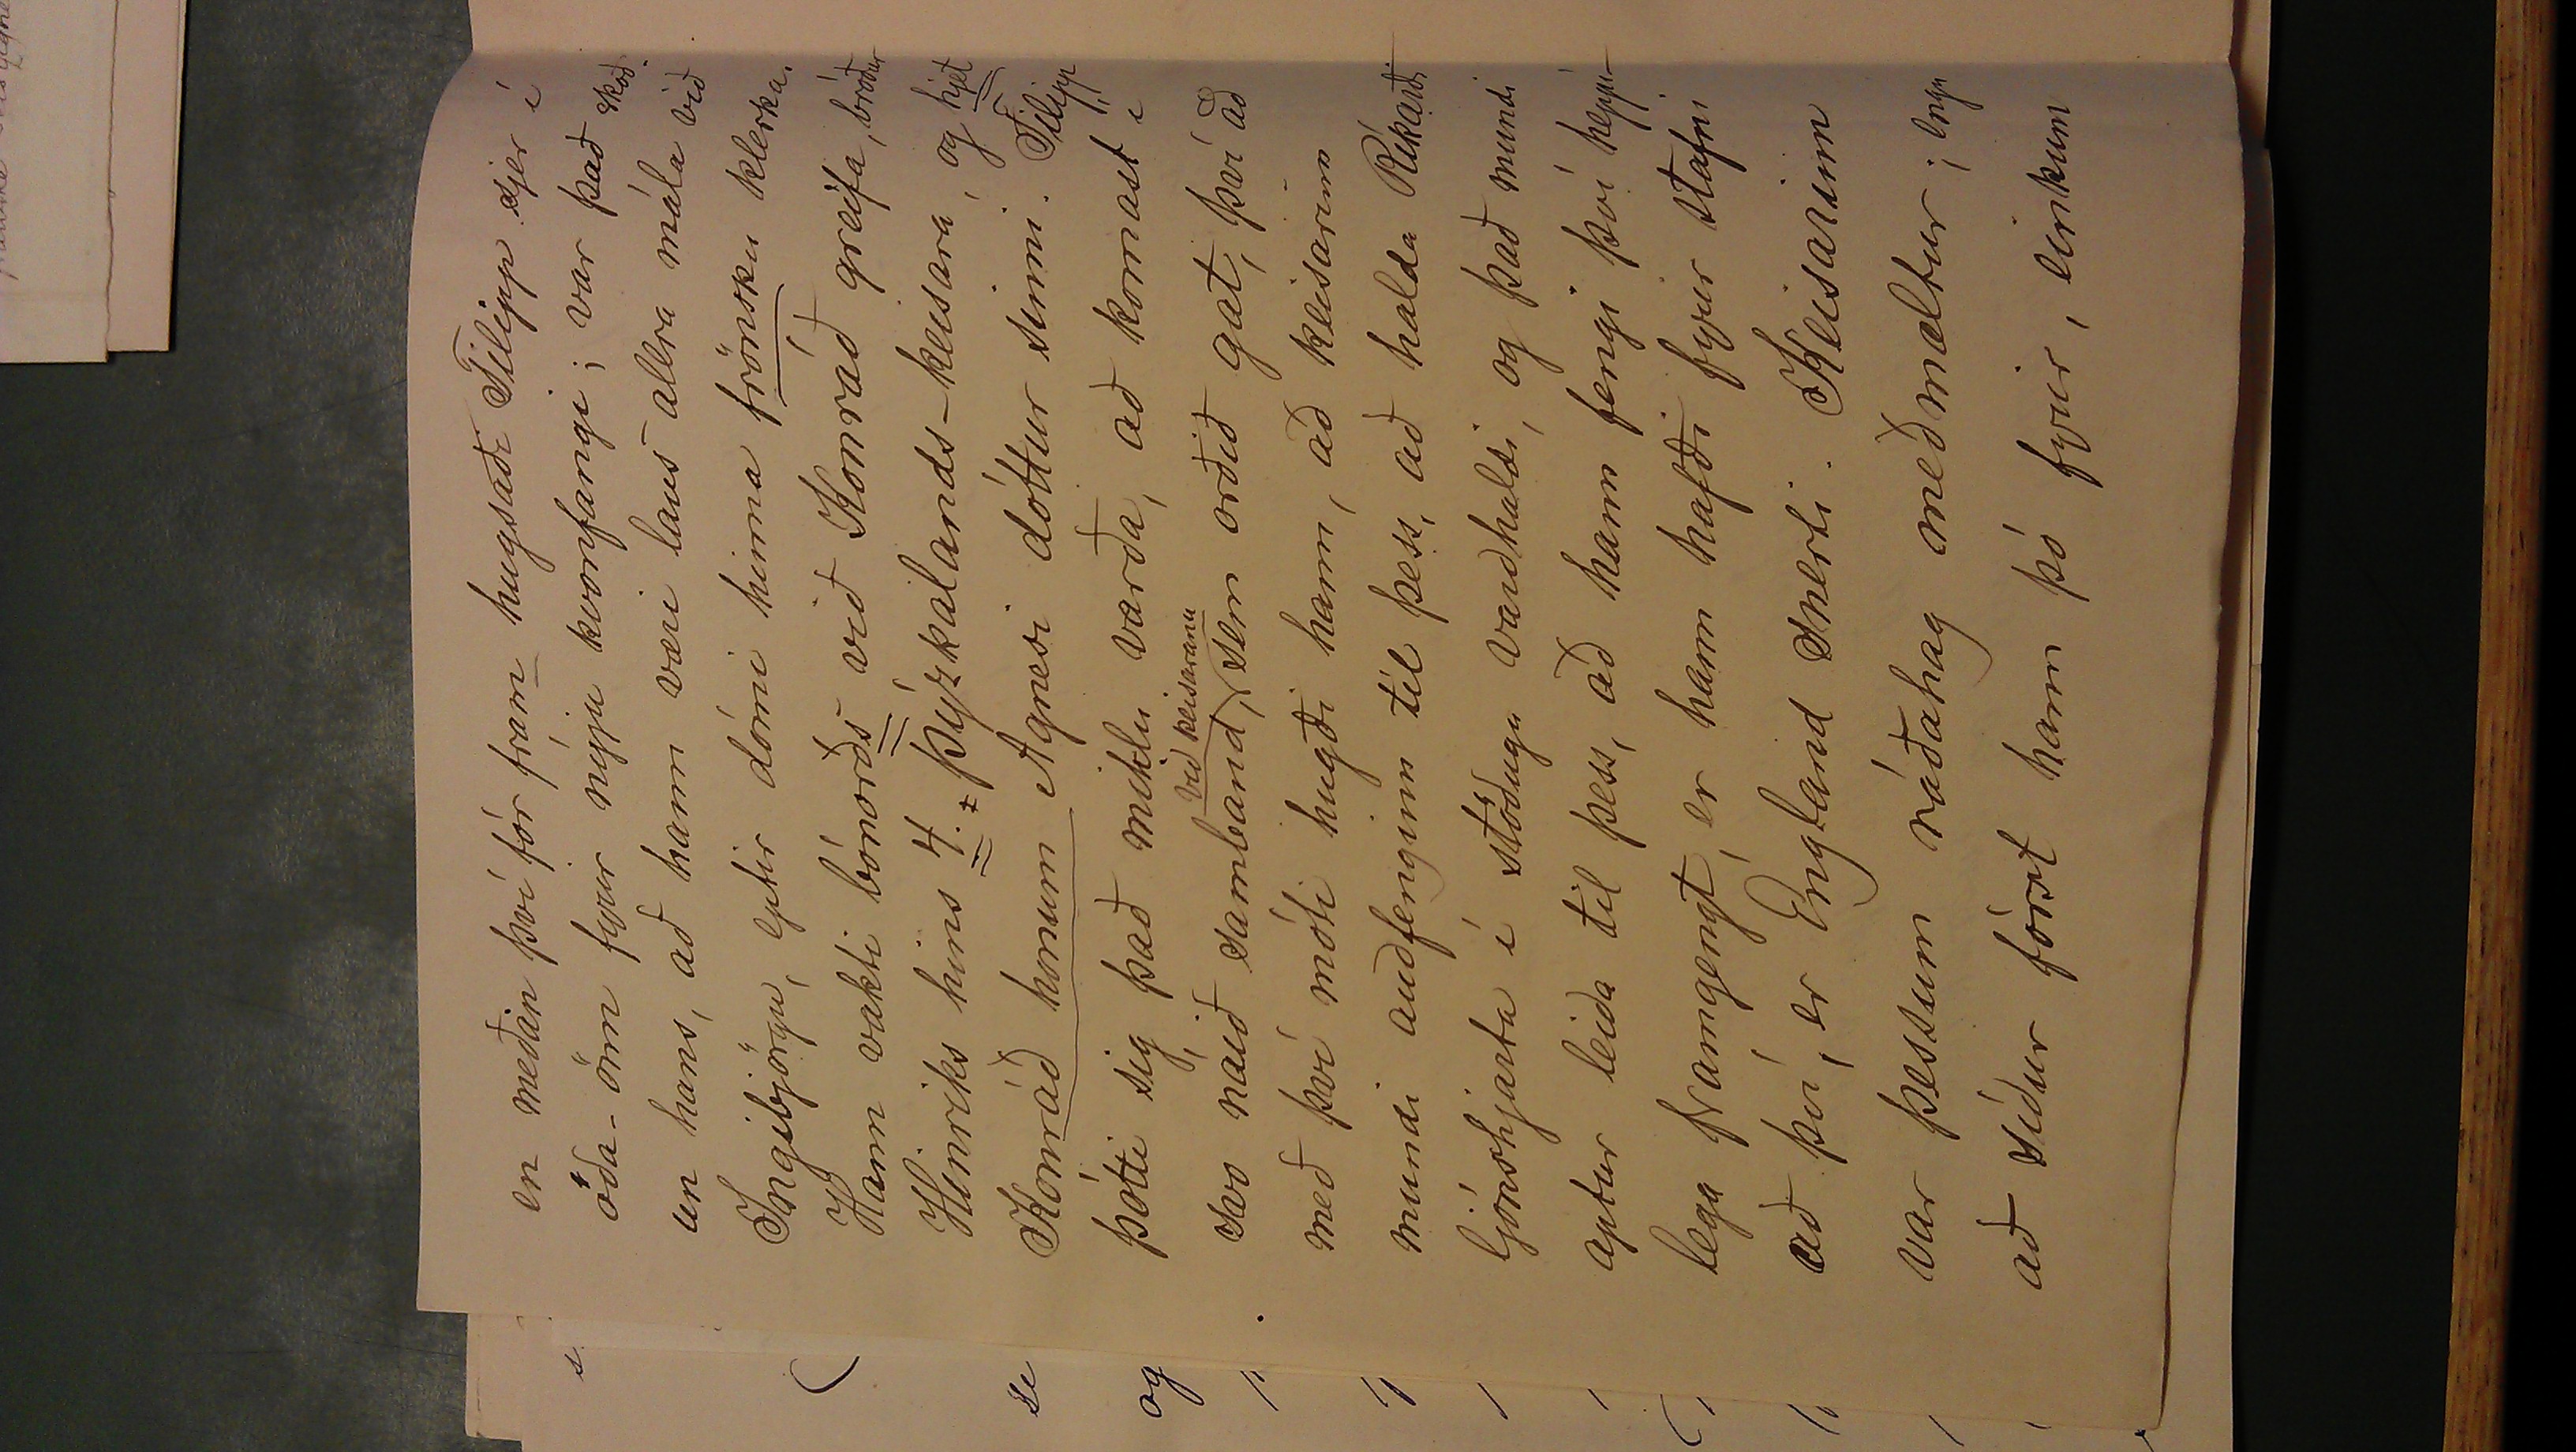 en meðan því fór fram hugsaði Filipp sjer í
óða-önn fyrir nýju kvonfangi; var það skoð-
un hans, að hann væri laus allra mála við
Ingibjörgu, eptir dómi hinna frönsku klerka.
Hann vakti bónorðs við Konráð greifa, bróður
Hinriks hins 4. Þýzkalands-keisara, og hjet
Konráð honum Agnesi dóttur sinni. Filipp
þótti sig það miklu varða, að komast í
svo náið samband, við keisarann sem orðið gat, því að
með því móti hugði hann, að keisarinn
mundi auðfenginn til þess, að halda Ríkarði
ljónshjarta í stöðugu varðhaldi, og það mundi
aptur leiða til þess, að hann fengi því heppi-
lega framgengt, er hann hafði fyrir stafni
að því, er England snerti. Keisarinn
var þessum ráðahag meðmæltur; engu
að síður fórst hann þó fyrir, einkum
se
og